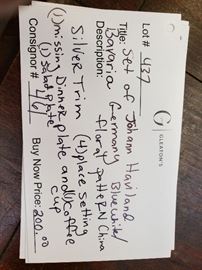 G
GLEATON'S
Lot# 437
Title: Set of Johann Haviland
Bavaria Germany Blue white/
Description: floral pattern China
Silver Trim (4) place setting
(1) missing Dinner plate and (1) coffee
(1) salad plate cup
Consignor # 461 Buy Now Price: 200.00